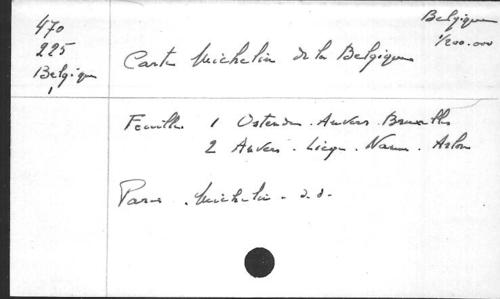 470
225
Belgique
1
Belgique
1/200.000
Carte Michelin de la Belgique
Feuilles 1 Ostende. Anvers. Bruxelles
2 Anvers. Liège. Namur. Arlon
Paris. Michelin. s.d.